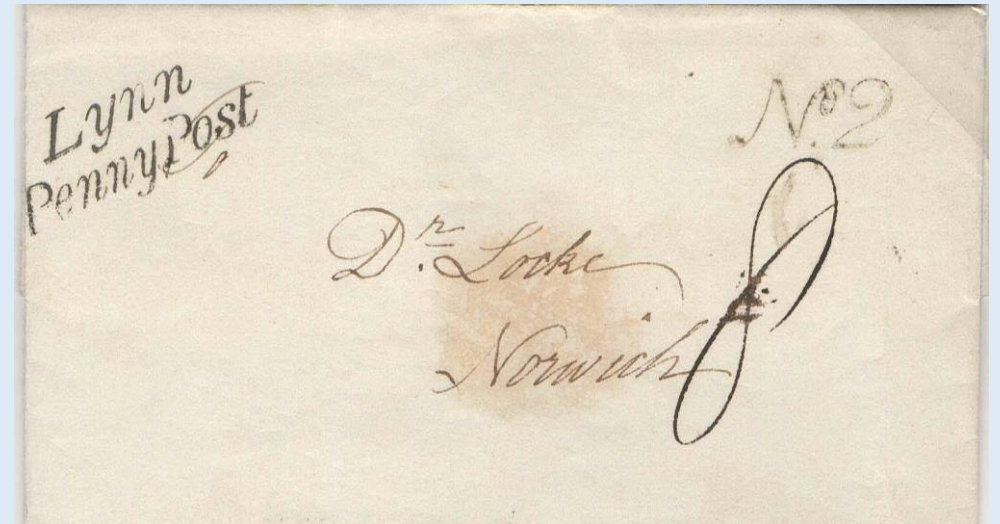 Lynn
Penny Post
No. 2
Dr. Locke
Norwich
8